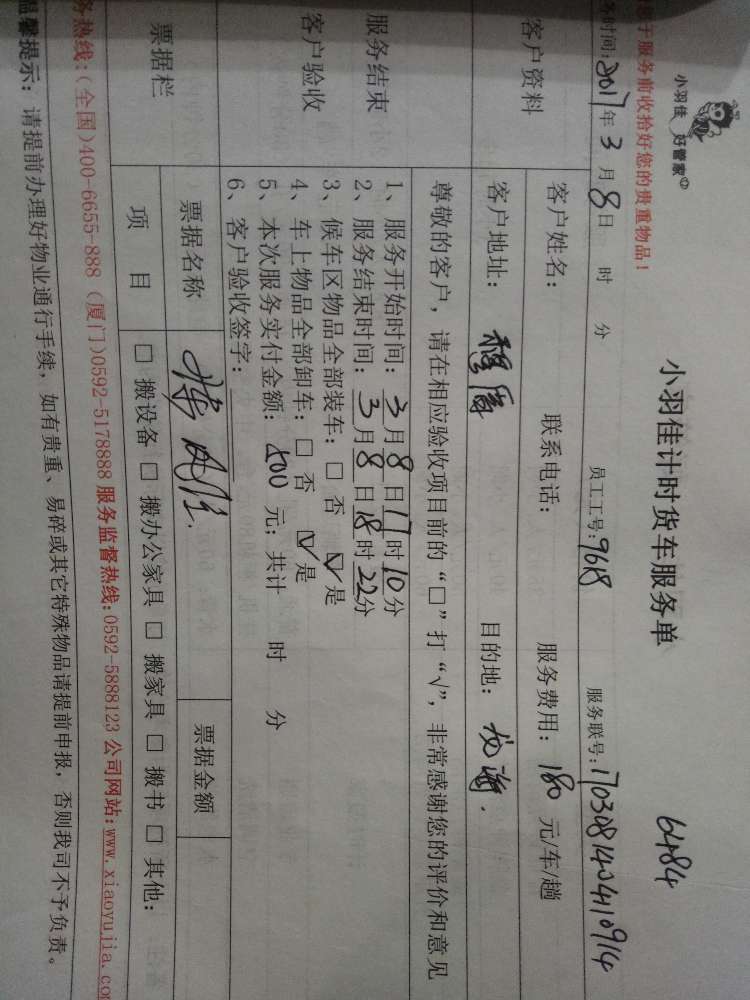 小羽佳 好管家
小羽佳计时货车服务单
6484
于服务前收拾好您的贵重物品!
务时间:2017年3月8日 时 分 员工工号:9618 服务联号:170308140410914
客户资料
客户姓名: 联系电话: 服务费用:180元/车/趟
客户地址: 目的地:龙海.
尊敬的客户,请在相应验收项目前的“□”打“√”,非常感谢您的评价和意见
服务结束
客户验收
1、服务开始时间:3月8日17时10分
2、服务结束时间:3月8日18时22分
3、候车区物品全部装车:□ 否 ☑ 是
4、车上物品全部卸车:□ 否 ☑ 是
5、本次服务实付金额:400元;共计 时 分
6、客户验收签字:
票据栏
票据名称 票据金额
项 目 □ 搬设备 □ 搬办公家具 □ 搬家具 □ 搬书 □ 其他:
务热线:(全国)400-6655-888 (厦门)0592-5178888 服务监督热线:0592-5888123 公司网站:www.xiaoyujia.co
温馨提示:请提前办理好物业通行手续,如有贵重、易碎或其它特殊物品请提前申报,否则我司不予负责。